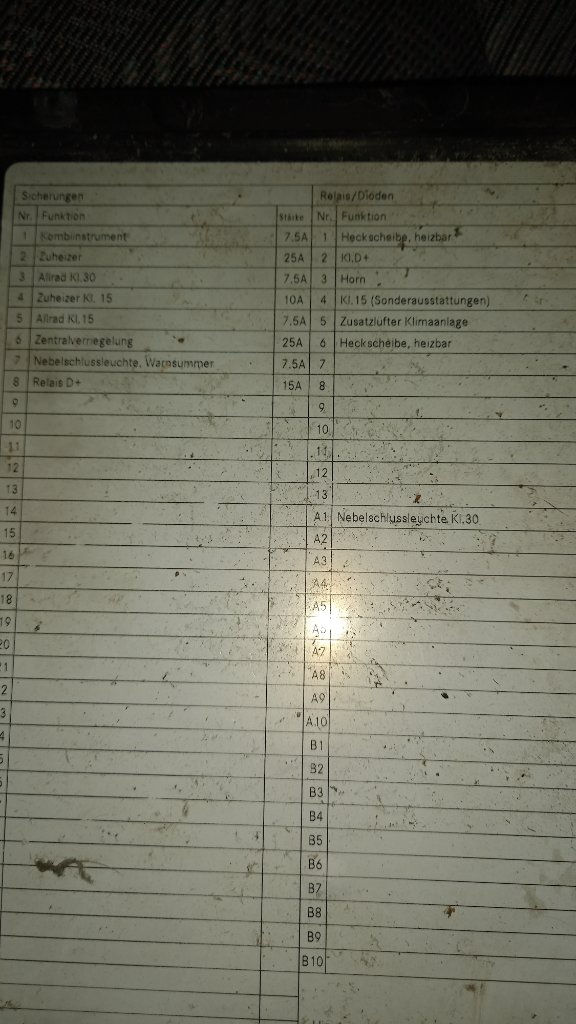 Sicherungen Relais/Dioden
Nr. Funktion Stärke Nr. Funktion
1 Kombiinstrument 7.5A 1 Heckscheibe, heizbar
2 Zuheizer 25A 2 Kl.D+
3 Allrad Kl.30 7.5A 3 Horn
4 Zuheizer Kl. 15 10A 4 Kl.15 (Sonderausstattungen)
5 Allrad Kl.15 7.5A 5 Zusatzlüfter Klimaanlage
6 Zentralverriegelung 25A 6 Heckscheibe, heizbar
7 Nebelschlussleuchte, Warnsummer 7.5A 7
8 Relais D+ 15A 8
9 9
10 10
11 11
12 12
13 13
14 A1 Nebelschlussleuchte Kl.30
15 A2
16 A3
17 A4
18 A5
19 A6
20 A7
1 A8
2 A9
3 A10
4 B1
5 B2
B3
B4
B5
B6
B7
B8
B9
B10